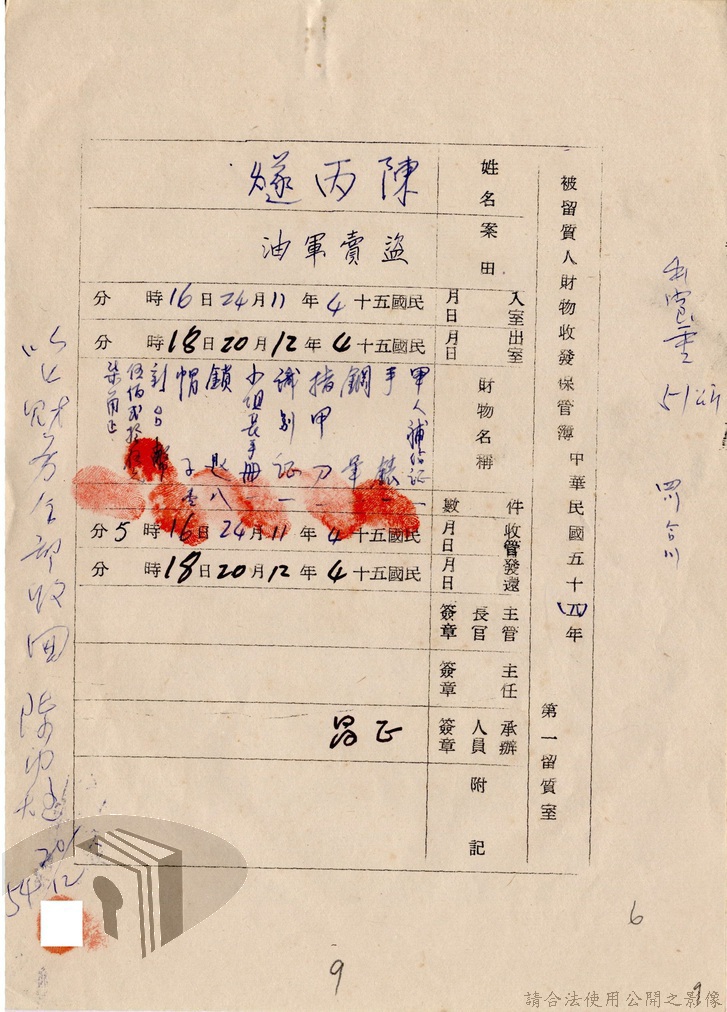 被留質人財物收發保管簿 中華民國五十(五)年
第一留質室
姓名 陳丙燧
案由 盜賣軍油
入室月日 民國五十4年11月24日16時 分
出室月日 民國五十4年12月20日18時 分
財物名稱
件數
甲人補給証一
手錶一
鋼筆
指甲刀一
識別証一
小組長手冊
鎖匙八
帽子壹
收管月日 民國五十4年11月24日16時5分
發還月日 民國五十4年12月20日18時 分
主管長官簽章
主任簽章
承辦人員簽章 正
附記
以上財務全部收回 陳丙燧
20/12
54
6
9
9
請合法使用公開之影像